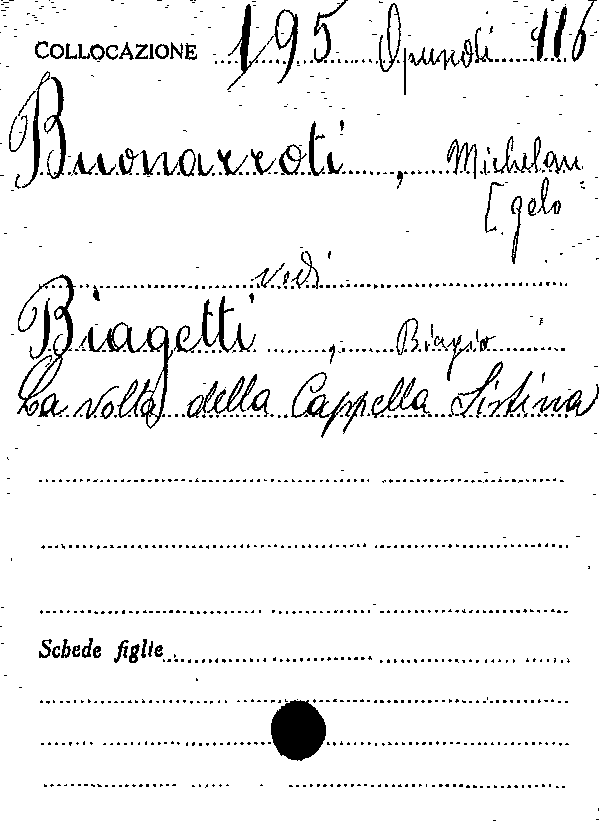 COLLOCAZIONE 195 Opuscoli 116
Buonarroti, Michelan
[gelo
vedi
Biagetti, Biagio
La volta della Cappella Sistina
Schede figlie